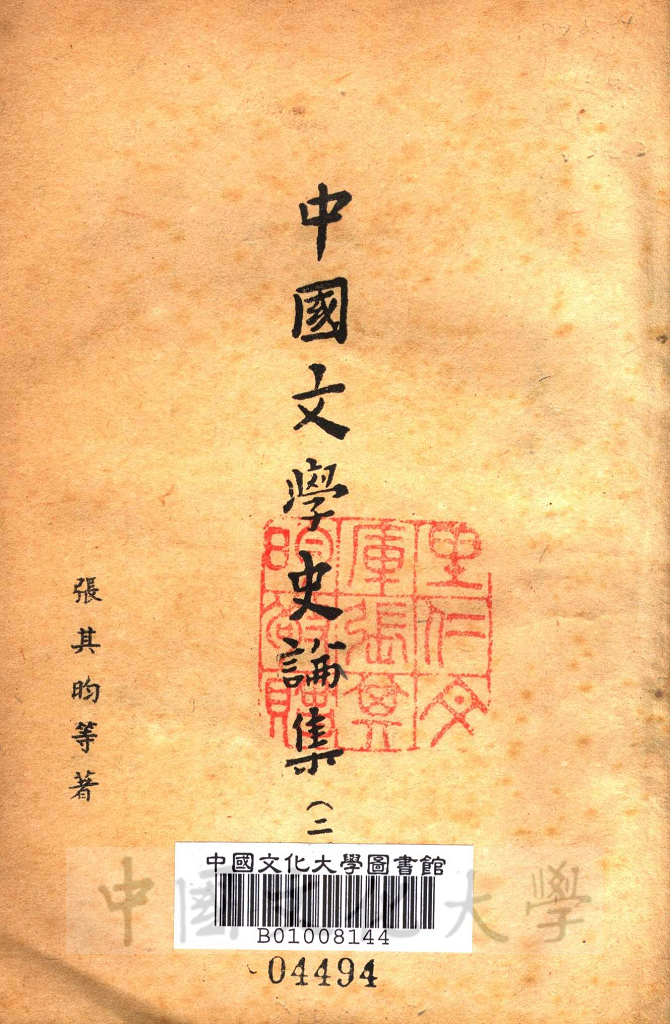 中國文學史論集（二
張其昀等著
里仁文
庫張其
昀敬贈
中國文化大學圖書館
B01008144
中國文化大學
04494